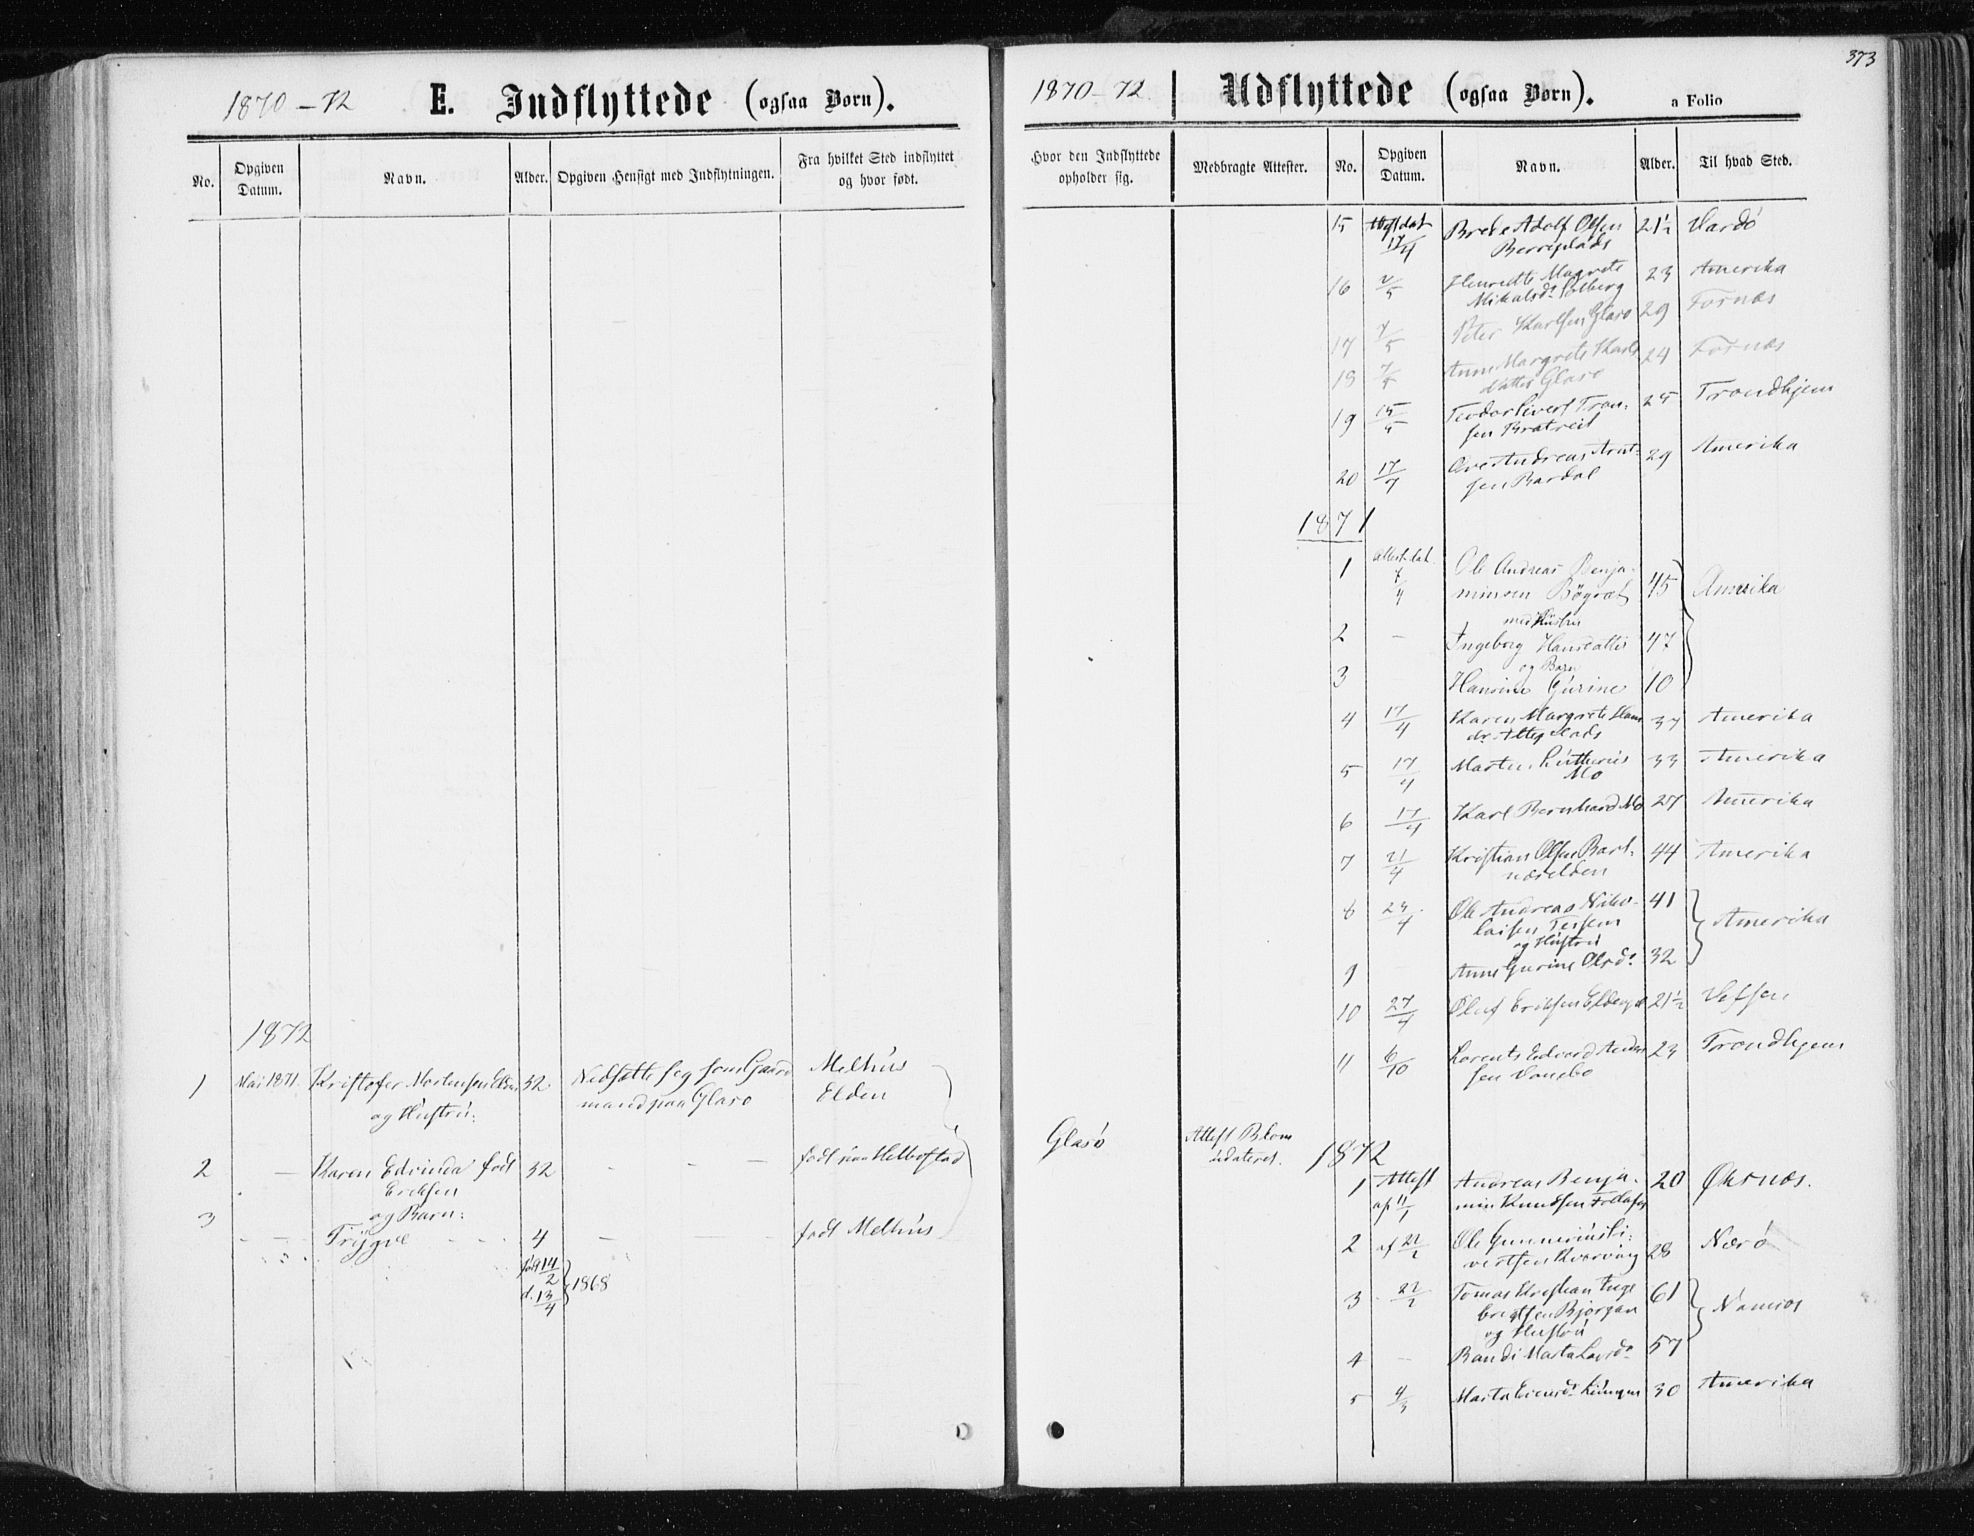 1870-72 E. Indflyttede (ogsaa Børn).
No.
Opgiven Datum.
Navn.
Alder.
Opgiven Hensigt med Indflytningen.
Fra hvilket Sted indflyttet og hvor født.
1872
1 Mai 1871. Kristofer Mortensen Elden 32 Nedsætte seg som Gaard Melhus
og Hustru: mand paa Glasø Elden
2 — Karen Edvinda født 32 - - - født paa Helbostad
Eriksen
og Barn:
3 - - Trygve - - - 4 - - født Melhus
født 14/2
d. 13/4 } 1868
373
1870-72. Udflyttede (ogsaa Børn). a Folio
Hvor den Indflyttede opholder sig.
Medbragte Attester.
No.
Opgiven Datum.
Navn.
Alder.
Til hvad Sted.
15 17/4 Brede Adolf Olsen 21½ Vardø
16 2/5 Henrikte Magrete 23 Amerika
Mikalsdr Solberg
17 7/5 Peter Karlsen Glasø 29 Fosnæs
18 7/5 Anne Margrete Karls 24 Fosnæs
datter Glasø
19 15/5 Teodor Sivert Tron- 25 Trondhjem
sen Bratreit
20 17/7 Ove Andreas Arnt- 29 Amerika
sen Bardal
1871
1 Attest dat. Ole Andreas Benja-
7/4 minsen Bøgræt 45 } Amerika
med Hustru
2 - Ingeborg Hansdatter 47
og Barn
3 Hansine Gurine 10
4 17/4 Karen Margrete Hans 37 Amerika
5 17/4 Martin Lutherius 33 Amerika
Mo
6 17/4 Karl Bernhard Mo 27 Amerika
7 21/4 Kristian Olsen Bart- 44 Amerika
næselden
8 24/4 Ole Andreas Niko- 41 } Amerika
laisen Tessem
og Hustru
9 Anne Gurine Olsdr 32
10 27/4 Oluf Eriksen 21½ Vefsen
11 6/10 Lorents Edvard Anders 23 Trondhjem
sen
Glasø Attest Blom
udateret. 1872
1 Attest Andreas Benja- 20 Øksnæs.
af 11/1 min Knudsen
2 af 22/2 Ole Gunnerius Si-
vertsen Kvarving 28 Nærø
3 22/2 Tomas Kristian Inge 61 } Namsos
brigtsen Bjørgan
og Hustru
4 - Randi Marta Larsdr 57
5 4/3 Marta Einersdr 30 Amerika